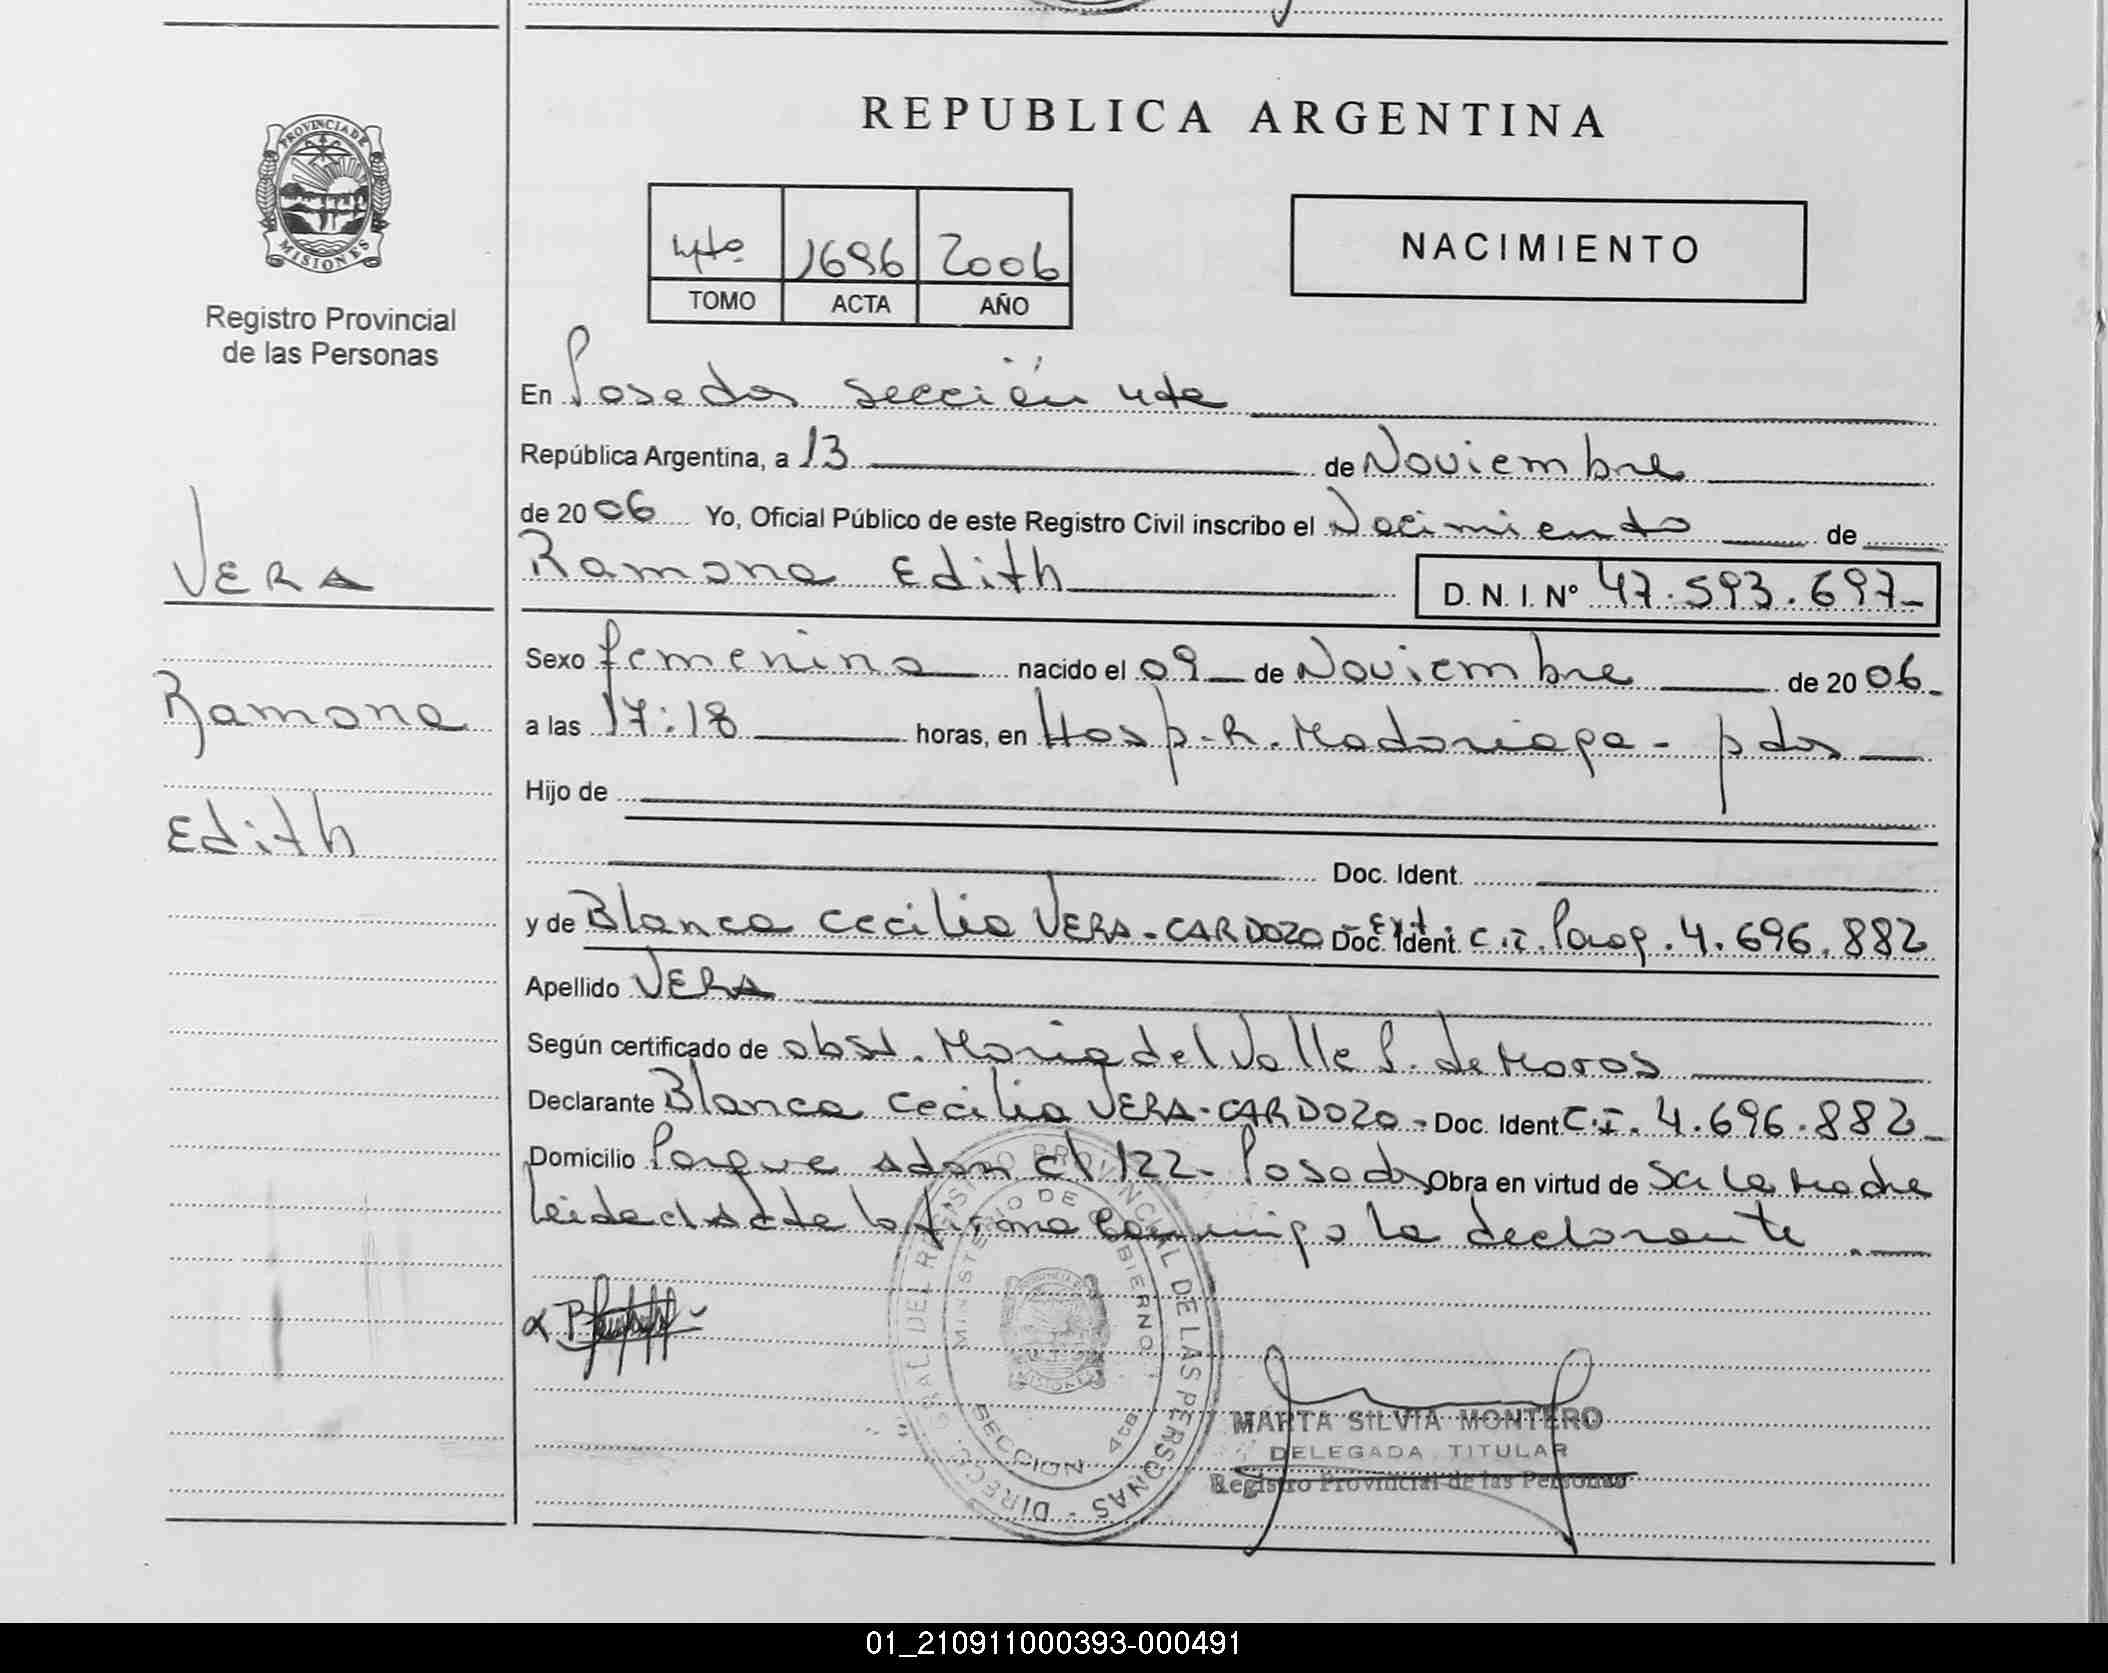 REPUBLICA ARGENTINA
PROVINCIA DE
MISIONES
Registro Provincial
de las Personas
4to 1696 2006
TOMO ACTA AÑO
NACIMIENTO
VERA
Ramona
Edith
En Posadas sección 4ta
República Argentina, a 13 de Noviembre
de 2006 Yo, Oficial Público de este Registro Civil inscribo el Nacimiento de
Ramona Edith D. N. I. N° 47.593.697-
Sexo femenino nacido el 09 de Noviembre de 2006.
a las 17:18 horas, en Hosp. R. Madariaga - pdas
Hijo de
Doc. Ident.
y de Blanca Cecilia VERA-CARDOZO - Ext. Doc. Ident. C.I. Parag. 4.696.882
Apellido VERA
Según certificado de obst. Maria del Valle S. de
Declarante Blanca Cecilia VERA-CARDOZO - Doc. Ident C.I. 4.696.882
Domicilio Parque Adam cl 122- Posadas Obra en virtud de la Madre
Leida el Acta la firma conmigo la declarante.
DIRECC. GRAL DEL REGISTRO PROVINCIAL DE LAS PERSONAS
MINISTERIO DE GOBIERNO
SECCION 4ta
MARTA SILVIA MONTERO
DELEGADA TITULAR
Registro Provincial de las Personas
01_210911000393-000491